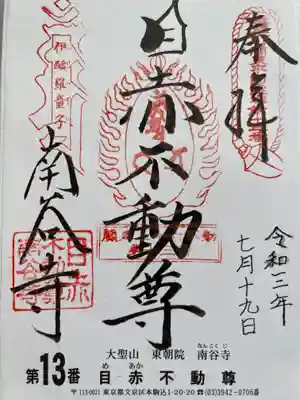 奉拝
令和三年
七月十九日
目赤不動尊
伊醯羅童子
南谷寺
大聖山 東朝院 南谷寺
なんこくじ
第13番 目赤不動尊
め あか
〒113-0021 東京都文京区本駒込1-20-20 ☎(03)3942-0706番